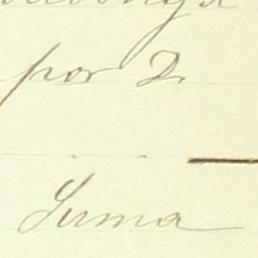 por 2.
Suma